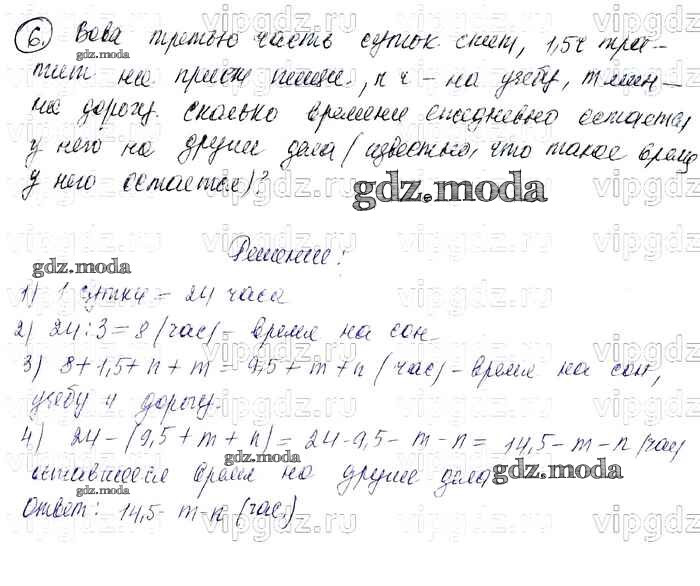 6. Вова третью часть суток спит, 1,5ч тра-
тит на прием пищи, n ч - на учебу, m мин -
на дорогу. Сколько времени ежедневно остается
у него на другие дела (известно, что такое время
у него остается)?
gdz.moda
Решение:
1) 1 сутки = 24 часа
2) 24:3=8 (час) - время на сон.
3) 8+1,5+n+m=9,5+m+n (час) - время на сон,
учебу и дорогу.
4) 24-(9,5+m+n)=24-9,5-m-n=14,5-m-n (час)
оставшееся время на другие дела
Ответ: 14,5-m-n (час.)